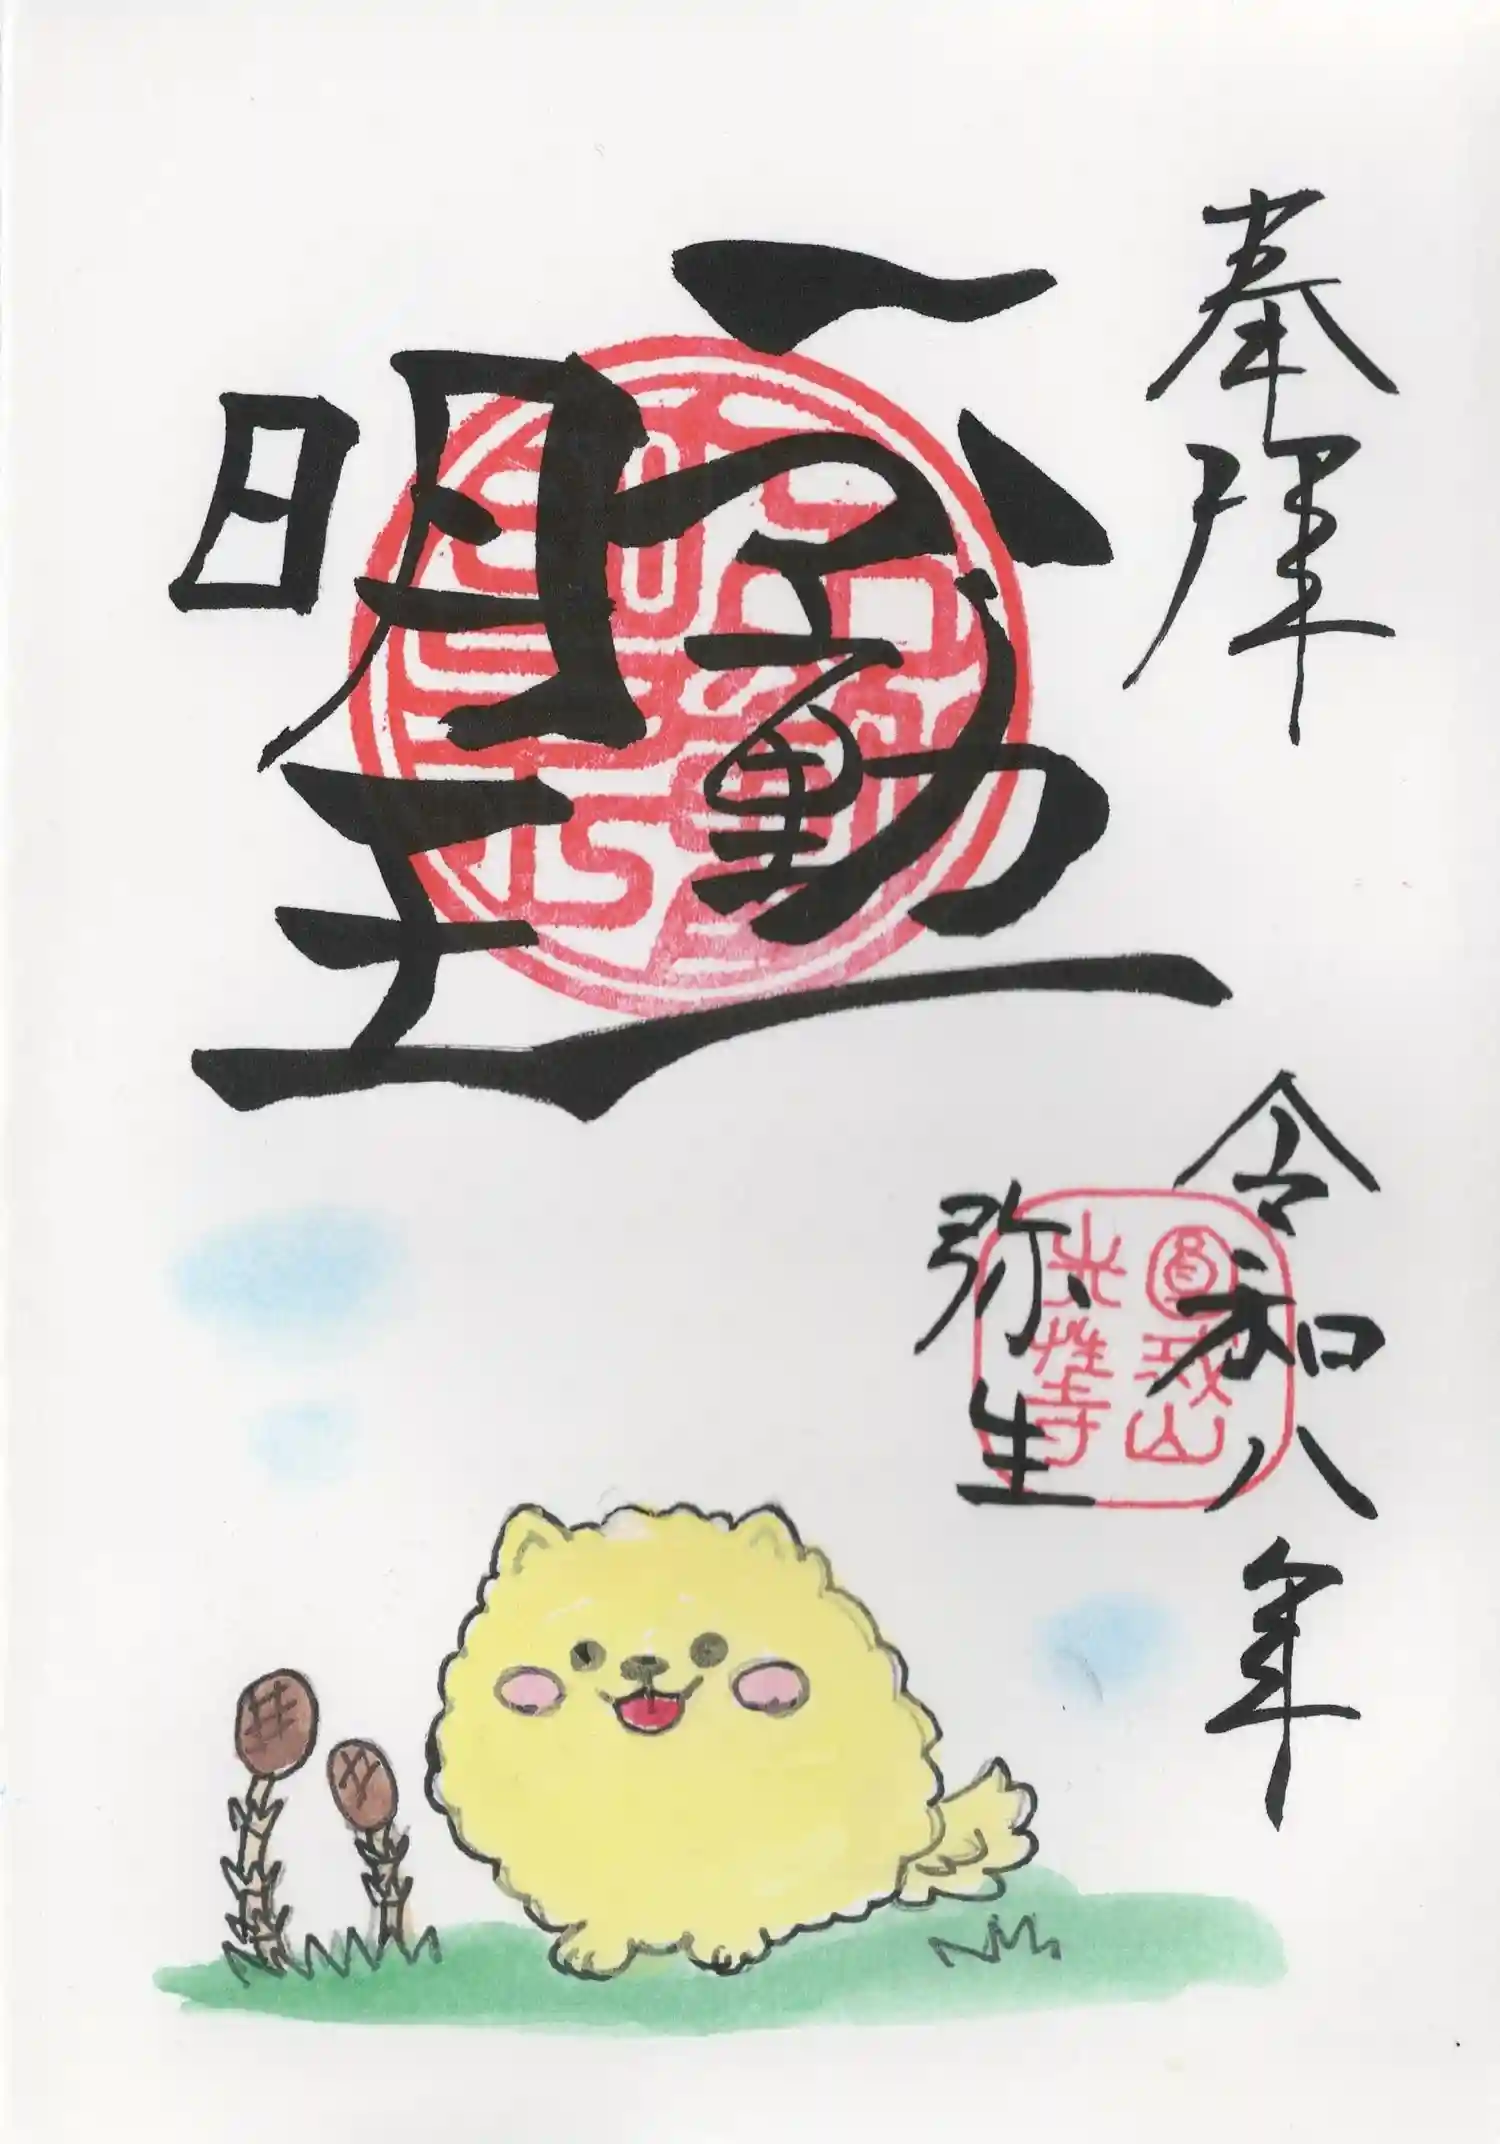 奉拝
不動
明王
令和八年
弥生
光性寺